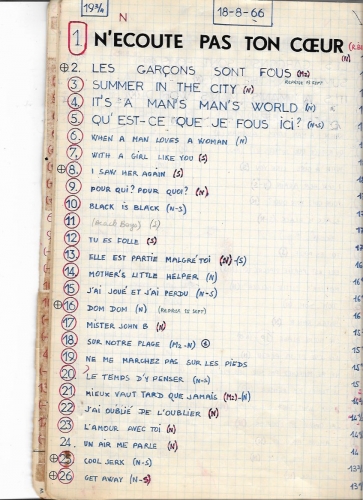 19¾
18-8-66
N
1 N'ECOUTE PAS TON CŒUR
(N)
⊕2. LES GARÇONS SONT FOUS (M2)
REPRISE 15 SEPT
3 SUMMER IN THE CITY (N)
4 IT'S A MAN'S MAN'S WORLD (N)
5. QU'EST-CE QUE JE FOUS ICI? (N-S)
6. WHEN A MAN LOVES A WOMAN (N)
7. WITH A GIRL LIKE YOU (S)
⊕8. I SAW HER AGAIN (S)
9. POUR QUI? POUR QUOI? (N)
10 BLACK IS BLACK (N-S)
11 (Beach Boys) (S)
12 TU ES FOLLE (S)
13. ELLE EST PARTIE MALGRÉ TOI (N)-(S)
14 MOTHER'S LITTLE HELPER (N)
15 J'AI JOUÉ ET J'AI PERDU (N-S)
⊕16 DOM DOM (N) (REPRISE 15 SEPT)
17 MISTER JOHN B (N)
18 SUR NOTRE PLAGE (M2-N)
19 NE ME MARCHEZ PAS SUR LES PIEDS
20 LE TEMPS D'Y PENSER (N-S)
21 MIEUX VAUT TARD QUE JAMAIS (M2)-(N)
22 J'AI OUBLIÉ DE L'OUBLIER (N)
23 L'AMOUR AVEC TOI (N)
24. UN AIR ME PARLE (N)
⊕25 COOL JERK (N-S)
⊕26 GET AWAY (N-S)